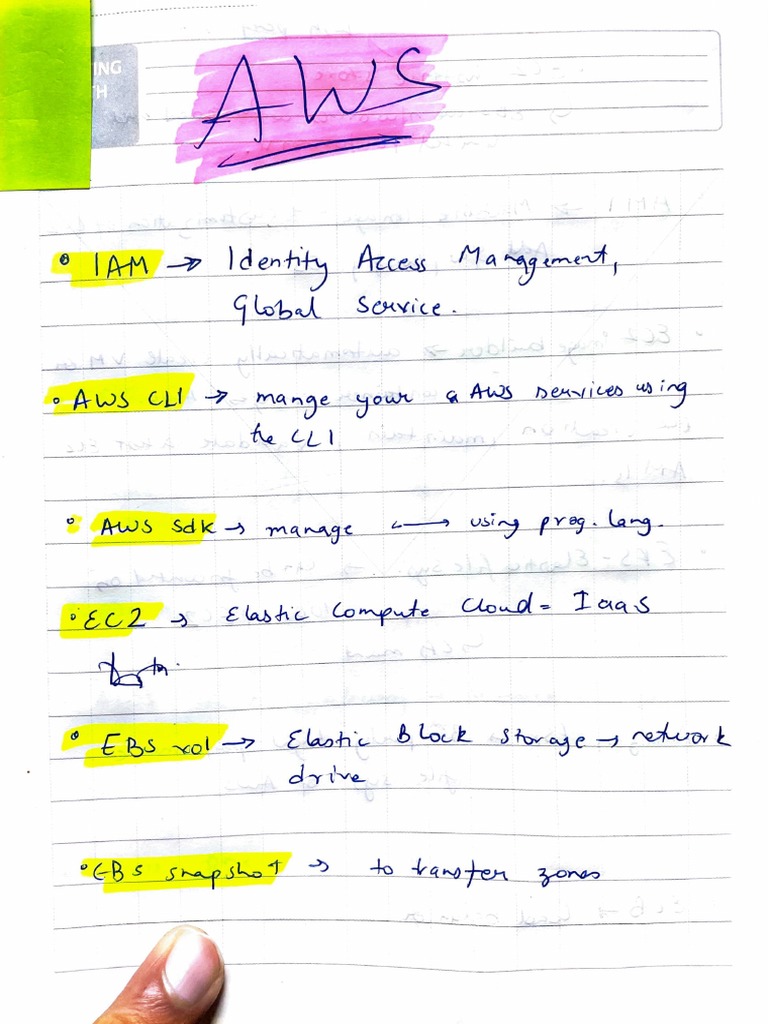 ING
TH
AWS
• IAM → Identity Access Management,
Global Service.
• AWS CLI → mange your & AWS services using
the CLI
• AWS sdk → manage ⟷ using prog. lang.
• EC2 → Elastic Compute Cloud = IaaS
• EBS vol → Elastic Block Storage → network
drive
• EBS snapshot → to transfer zones